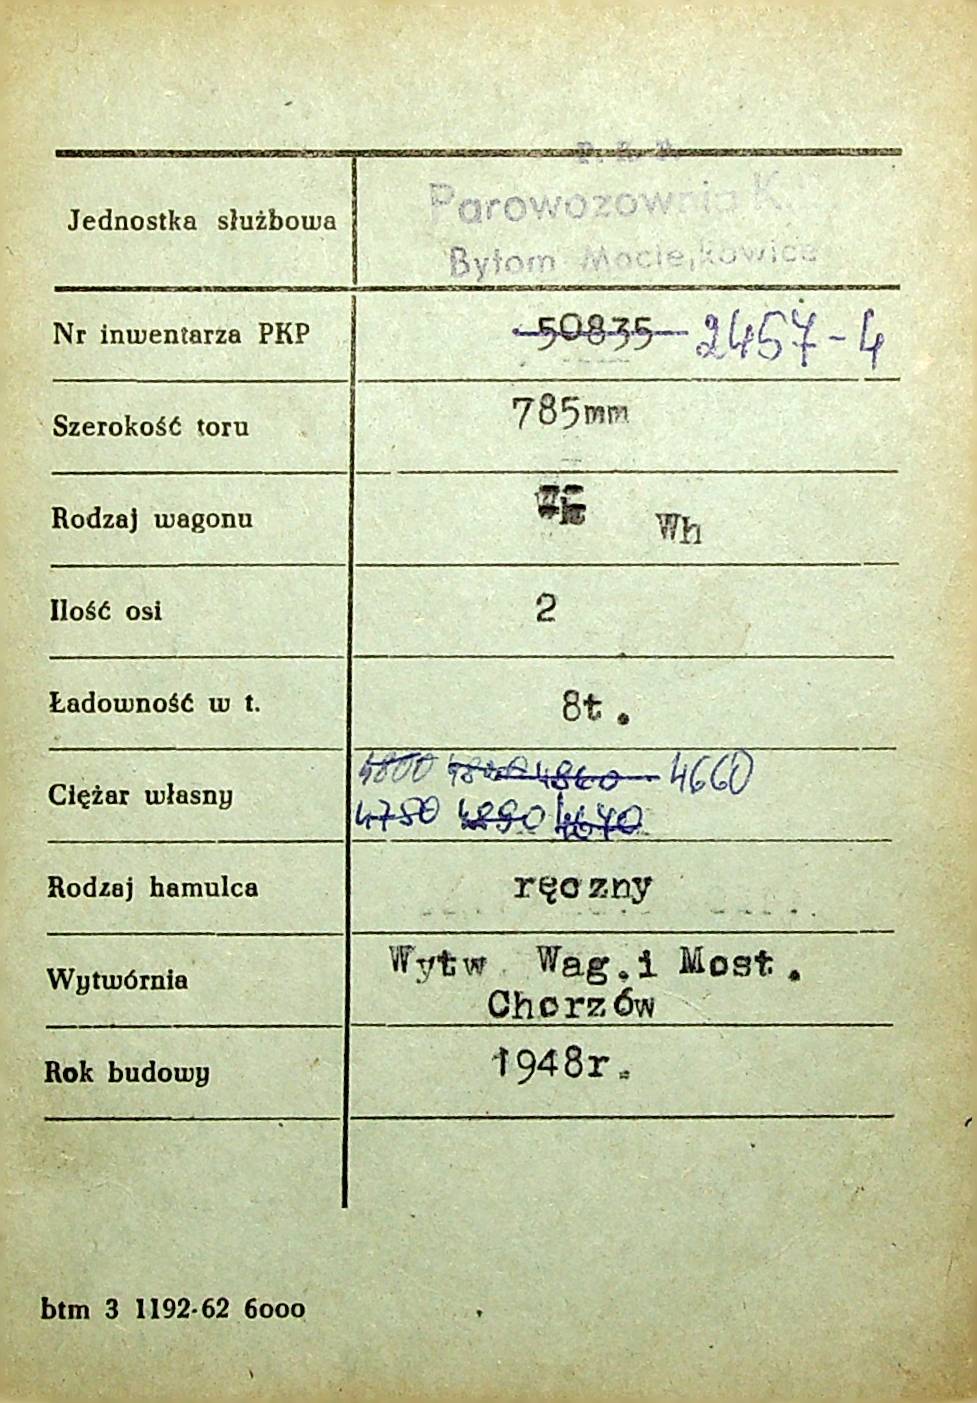 P. K. P.
Parowozownia K.
Jednostka służbowa
Bytom Maciejkowice
Nr inwentarza PKP 50835 2457-4
Szerokość toru 785mm
Rodzaj wagonu Wh
Ilość osi 2
Ładowność w t. 8t.
4800 4860 4660
Ciężar własny
4780 4890 4670
Rodzaj hamulca ręczny
Wytw Wag.i Most.
Wytwórnia
Chorzów
Rok budowy 1948r.
btm 3 1192-62 6000